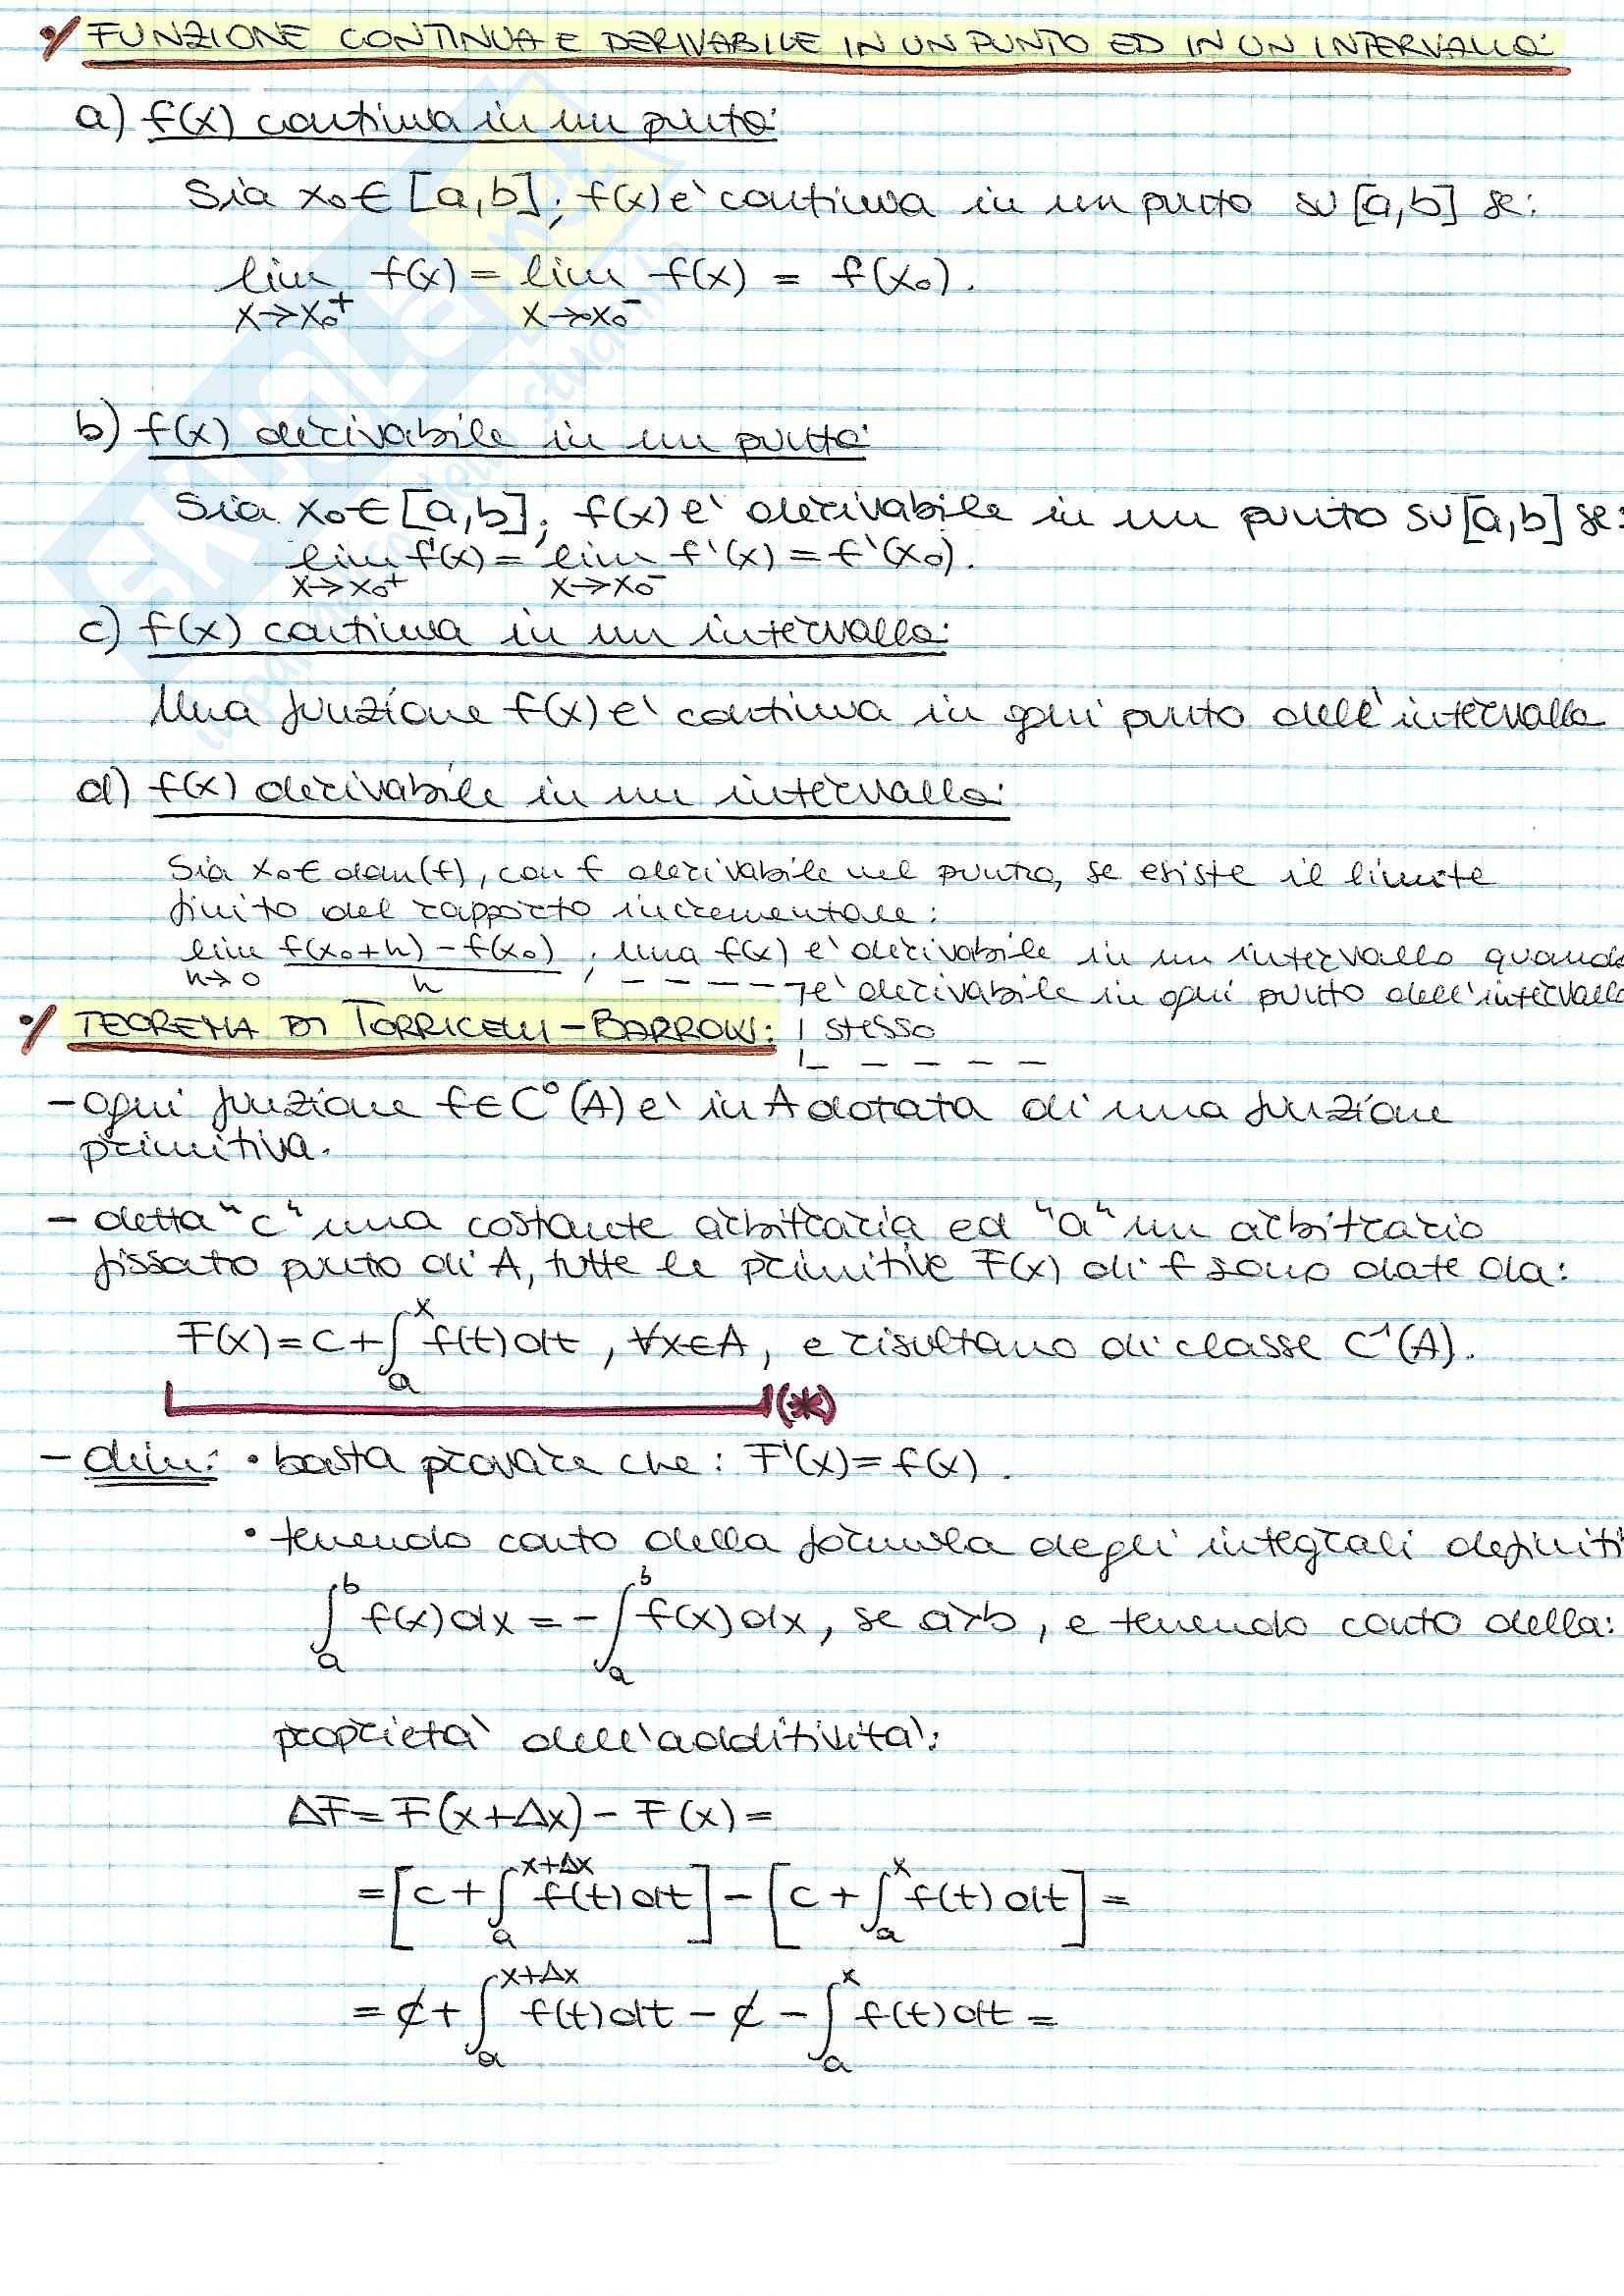 FUNZIONE CONTINUA E DERIVABILE IN UN PUNTO ED IN UN INTERVALLO:
a) f(x) continua in un punto:
Sia x₀∈[a,b]; f(x) e' continua in un punto su [a,b] se:
lim x→x₀⁺ f(x) = lim x→x₀⁻ f(x) = f(x₀).
b) f(x) derivabile in un punto:
Sia x₀∈[a,b]; f(x) e' derivabile in un punto su [a,b] se:
lim x→x₀⁺ f'(x) = lim x→x₀⁻ f'(x) = f'(x₀).
c) f(x) continua in un intervallo:
Una funzione f(x) e' continua in ogni punto dell'intervallo
d) f(x) derivabile in un intervallo:
Sia x₀∈dom(f), con f derivabile nel punto, se esiste il limite
finito del rapporto incrementale:
lim h→0 (f(x₀+h)-f(x₀))/h ; una f(x) e' derivabile in un intervallo quando
e' derivabile in ogni punto dell'intervallo
stesso
TEOREMA DI TORRICELLI-BARROW:
- ogni funzione f∈C⁰(A) e' in A dotata di una funzione
primitiva.
- detta "c" una costante arbitraria ed "a" un arbitrario
fissato punto di A, tutte le primitive F(x) di f sono date da:
F(x)=c+∫ₐˣ f(t)dt, ∀x∈A, e risultano di classe C¹(A).
(*)
- dim: • basta provare che: F'(x)=f(x).
• tenendo conto della formula degli integrali definiti
∫ₐᵇ f(x)dx = -∫ₐᵇ f(x)dx, se a>b, e tenendo conto della:
proprieta' dell'additivita':
ΔF = F(x+Δx) - F(x) =
= [c+∫ₐˣ⁺ᐞˣ f(t)dt] - [c+∫ₐˣ f(t)dt] =
= c+∫ₐˣ⁺ᐞˣ f(t)dt - c - ∫ₐˣ f(t)dt =